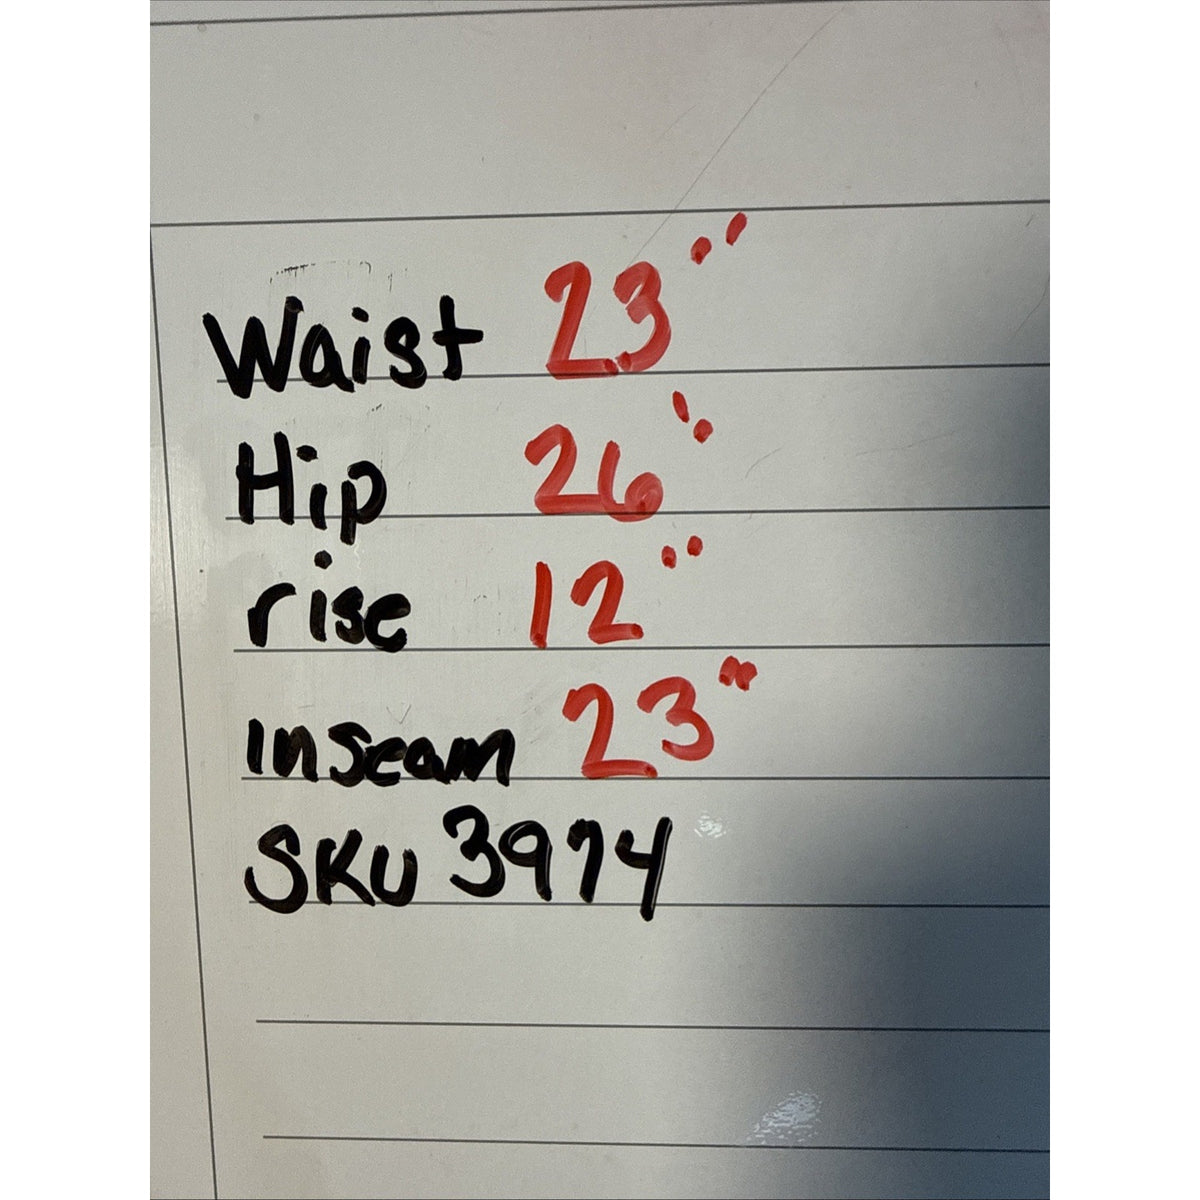 Waist 23"
Hip 26"
rise 12"
Inseam 23"
SKU 3974